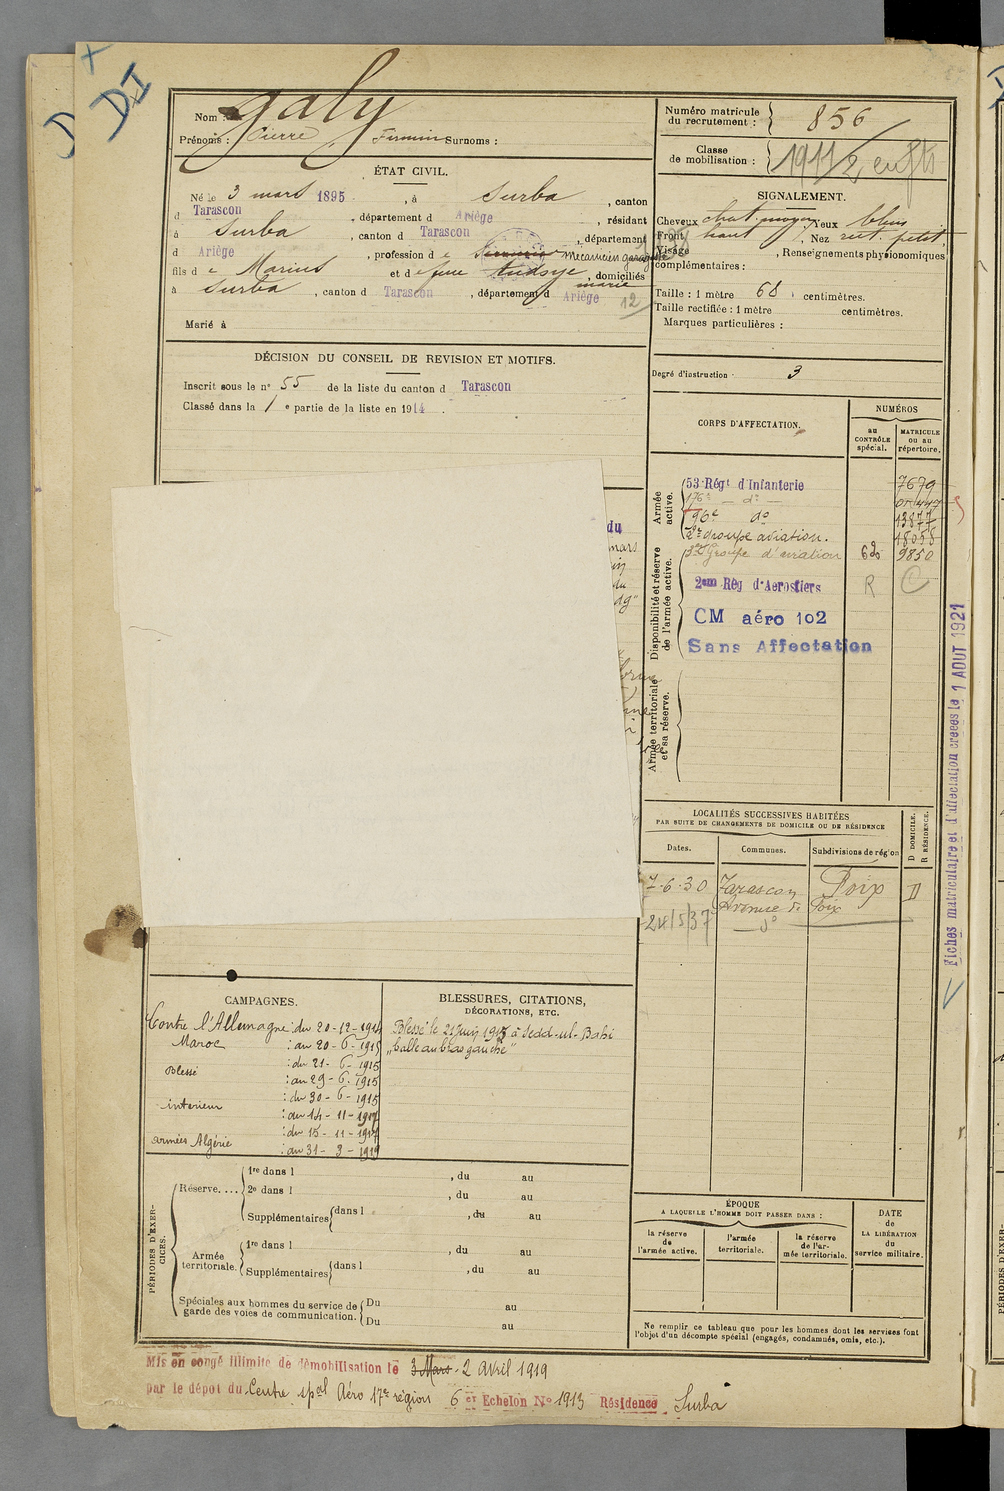 DI
Nom : Galy
Prénoms : Pierre Firmin Surnoms :
Numéro matricule du recrutement : 856
Classe de mobilisation : 1911/2 enfts
ÉTAT CIVIL.
Né le 3 mars 1895, à Surba, canton
d Tarascon, département d Ariège, résidant
à Surba, canton d Tarascon, département
d Ariège, profession d e mécanicien garagiste
fils d e Marius et d e feue marie, domiciliés
à Surba, canton d Tarascon, département d Ariège 12
Marié à
SIGNALEMENT.
Cheveux chat. moyen Yeux bleus
Front haut, Nez rect. petit
Visage, Renseignements physionomiques
complémentaires :
Taille : 1 mètre 68 centimètres.
Taille rectifiée : 1 mètre centimètres.
Marques particulières :
Degré d'instruction 3
DÉCISION DU CONSEIL DE REVISION ET MOTIFS.
Inscrit sous le n° 55 de la liste du canton d Tarascon
Classé dans la 1 e partie de la liste en 1914.
CORPS D'AFFECTATION.
NUMÉROS
au CONTRÔLE spécial.
MATRICULE ou au répertoire.
Armée active.
53e Régt d'Infanterie 7679
176e — do —
96e do 13877
2e groupe aviation. 18058
Disponibilité et réserve de l'armée active.
3e Groupe d'aviation 9850
2em Rég d'Aerostiers R C
CM aéro 102
Sans Affectation
Armée territoriale et sa réserve.
du
mars
Fiches matriculaire et d'affectation créées le 1 AOUT 1921
LOCALITÉS SUCCESSIVES HABITÉES
PAR SUITE DE CHANGEMENTS DE DOMICILE OU DE RÉSIDENCE
Dates.
Communes.
Subdivisions de région
D DOMICILE.
R RÉSIDENCE.
7.6.30 Tarascon Foix D
Avenue de Foix
24/5/37 — do
CAMPAGNES.
Contre l'Allemagne : du 20-12-1914
Maroc : au 20-6-1915
: du 21-6-1915
Blessé : au 29-6-1915
: du 30-6-1915
intérieur : au 14-11-1917
: du 15-11-1917
armées Algérie : au 31-3-1919
BLESSURES, CITATIONS,
DÉCORATIONS, ETC.
Blessé le 21 juin 1915 à Sedd-ul-Bahr
"balle au bras gauche"
PÉRIODES D'EXERCICES.
Réserve....
1re dans l, du au
2e dans l, du au
Supplémentaires dans l, du au
Armée territoriale.
1re dans l, du au
Supplémentaires dans l, du au
Spéciales aux hommes du service de garde des voies de communication.
Du au
Du au
ÉPOQUE
A LAQUELLE L'HOMME DOIT PASSER DANS :
la réserve de l'armée active.
l'armée territoriale.
la réserve de l'armée territoriale.
DATE de LA LIBÉRATION du service militaire.
Ne remplir ce tableau que pour les hommes dont les services font
l'objet d'un décompte spécial (engagés, condamnés, omis, etc.).
Mis en congé illimité de démobilisation le 3 Mars 2 avril 1919
par le dépot du Centre spal Aéro 17e région 6 et Echelon No 1913 Résidence Surba
PÉRIODES D'EXER-
CICES.